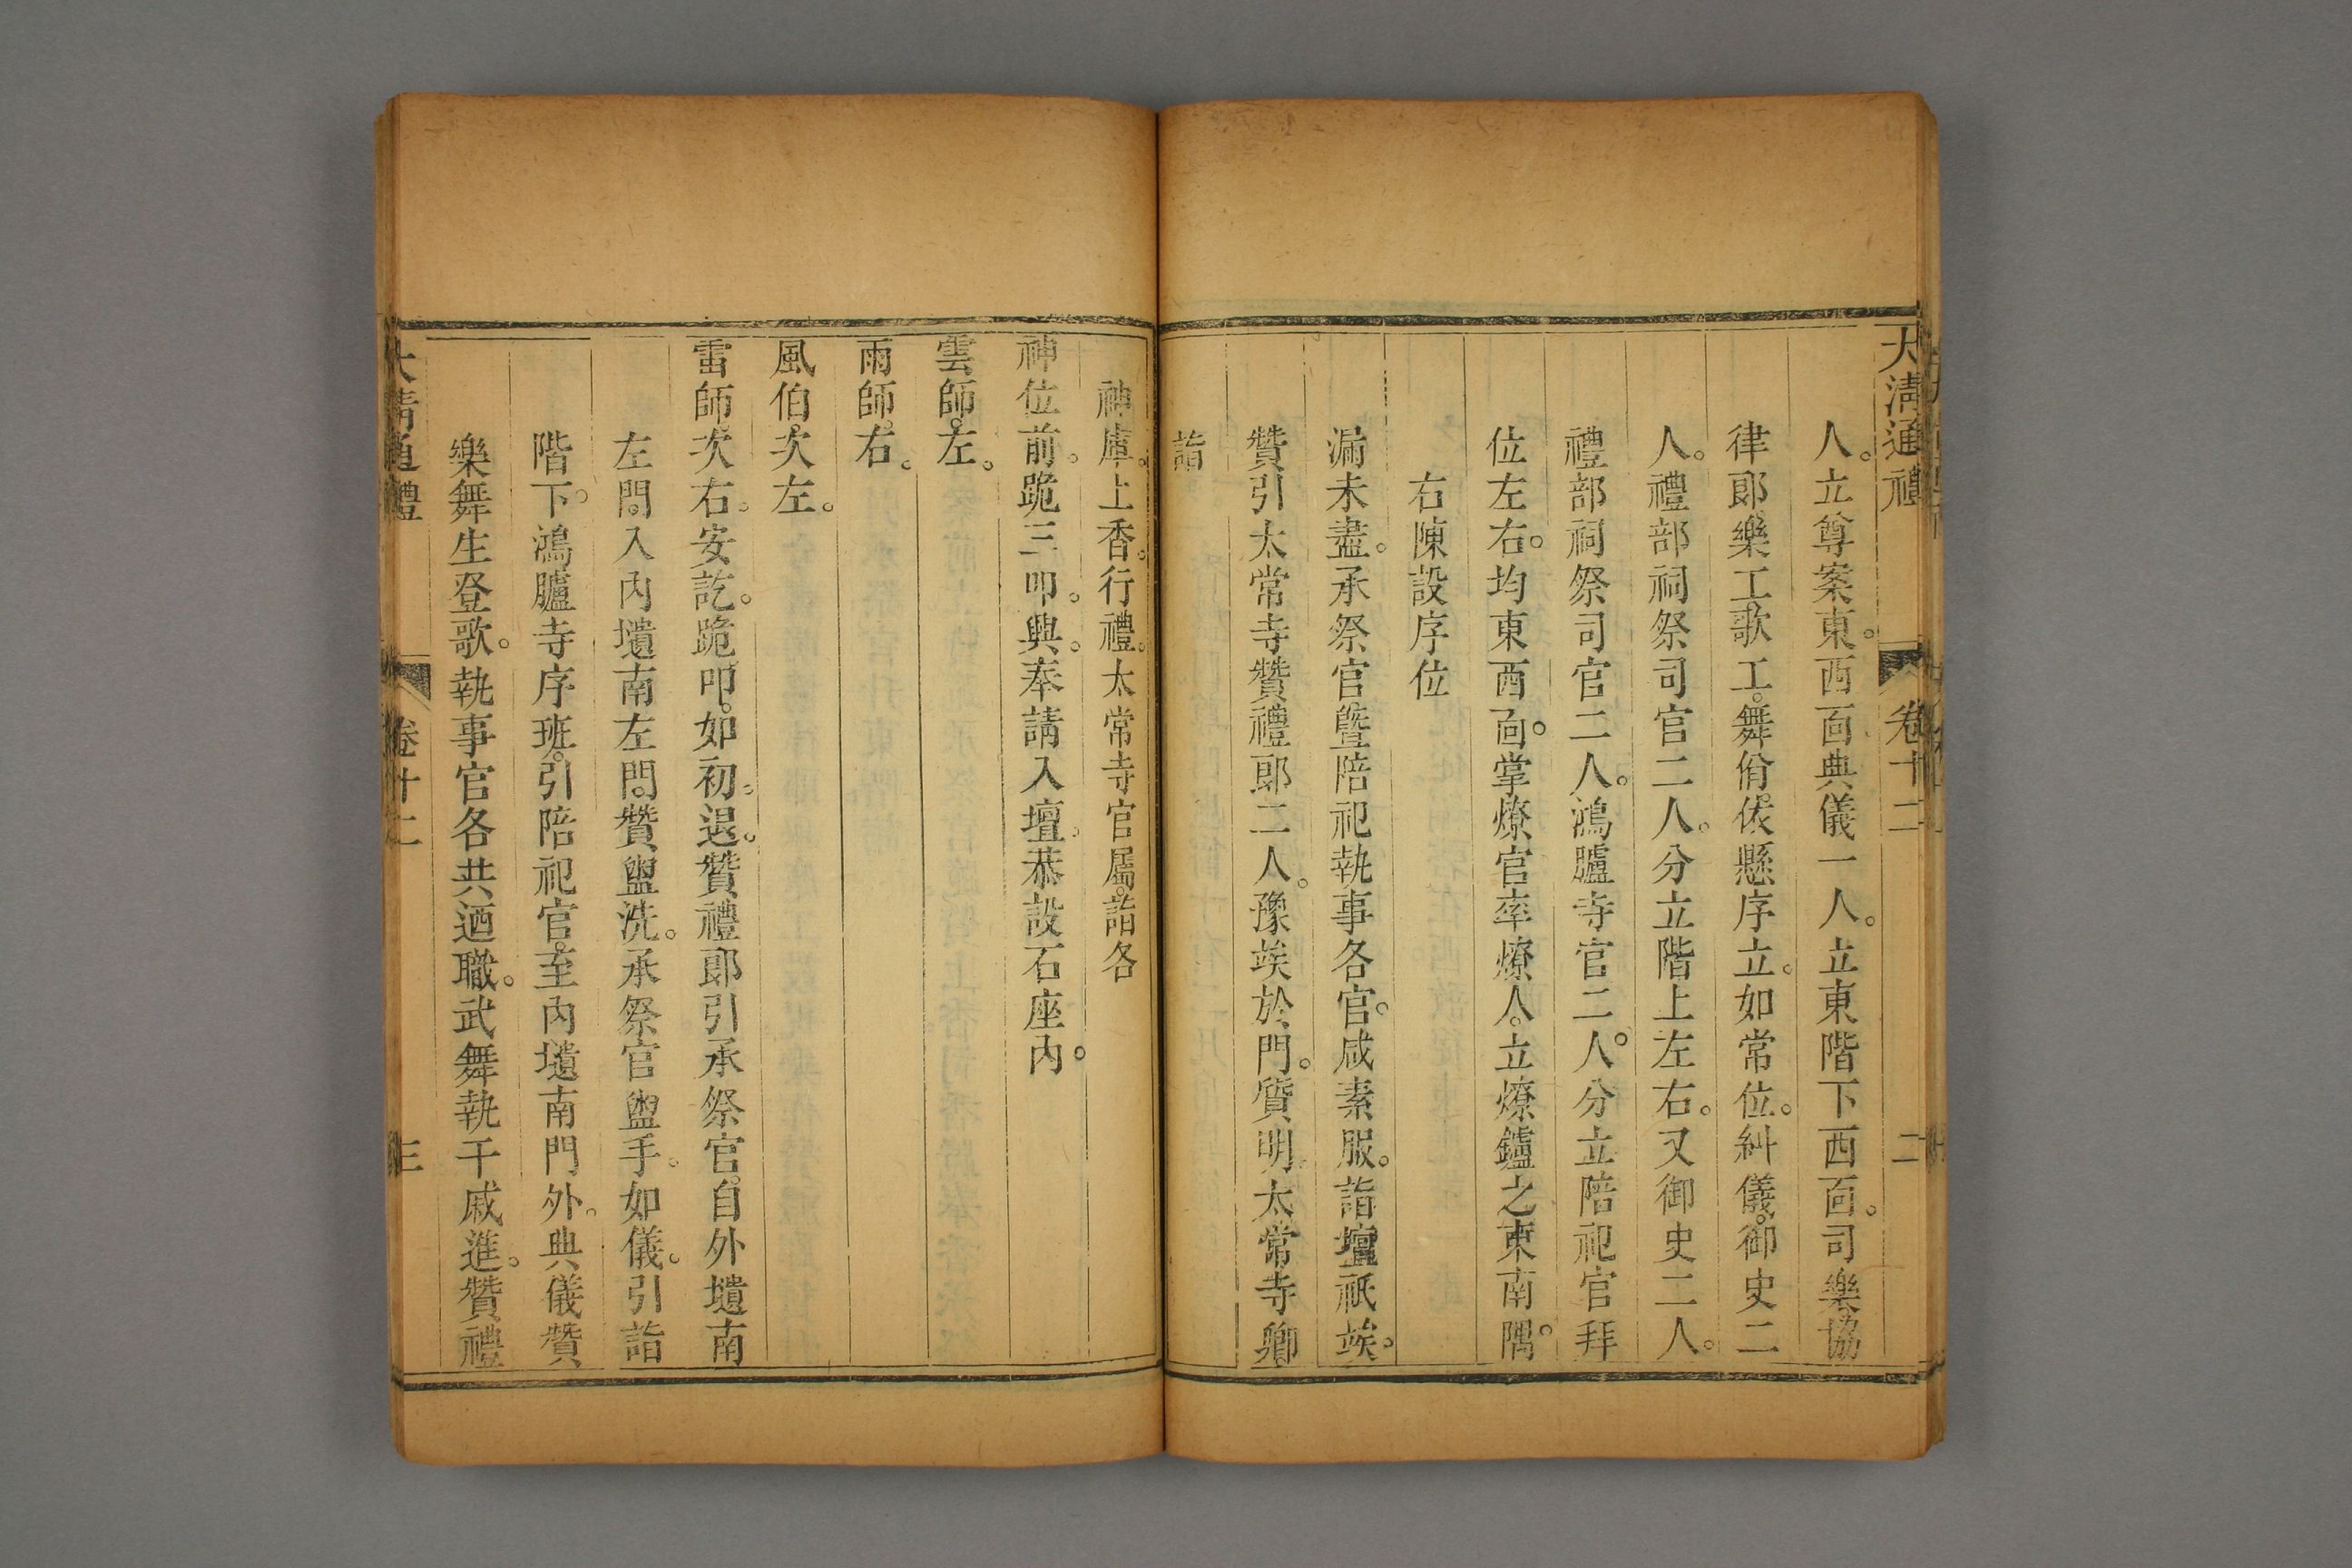 大清通禮 卷十二 二
人。立尊案東。西面典儀一人。立東階下西面。司樂協
律郎。樂工歌工。舞佾依懸序立。如常位。糾儀。御史二
人。禮部祠祭司官二人。分立階上左右。又御史二人。
禮部祠祭司官二人。鴻臚寺官二人。分立陪祀官拜
位左右。均東西面。掌燎官率燎人。立燎鑪之東南隅。
右陳設序位
漏未盡。承祭官曁陪祀執事各官。咸素服。詣壇祇竢。
贊引太常寺贊禮郎二人。豫竢於門。質明。太常寺卿
詣
神庫。上香。行禮。太常寺官屬。詣各
神位前。跪三叩。興。奉請入壇。恭設石座內。
雲師。左。
雨師。右。
風伯。次左。
雷師。次右。安訖。跪叩。如初。退。贊禮郎引承祭官。自外壝南
左門。入內壝南左門。贊盥洗。承祭官盥手。如儀。引詣
階下。鴻臚寺序班。引陪祀官。至內壝南門外。典儀贊
樂舞生登歌。執事官各共迺職。武舞執干戚進。贊禮
大清通禮 卷十二 三